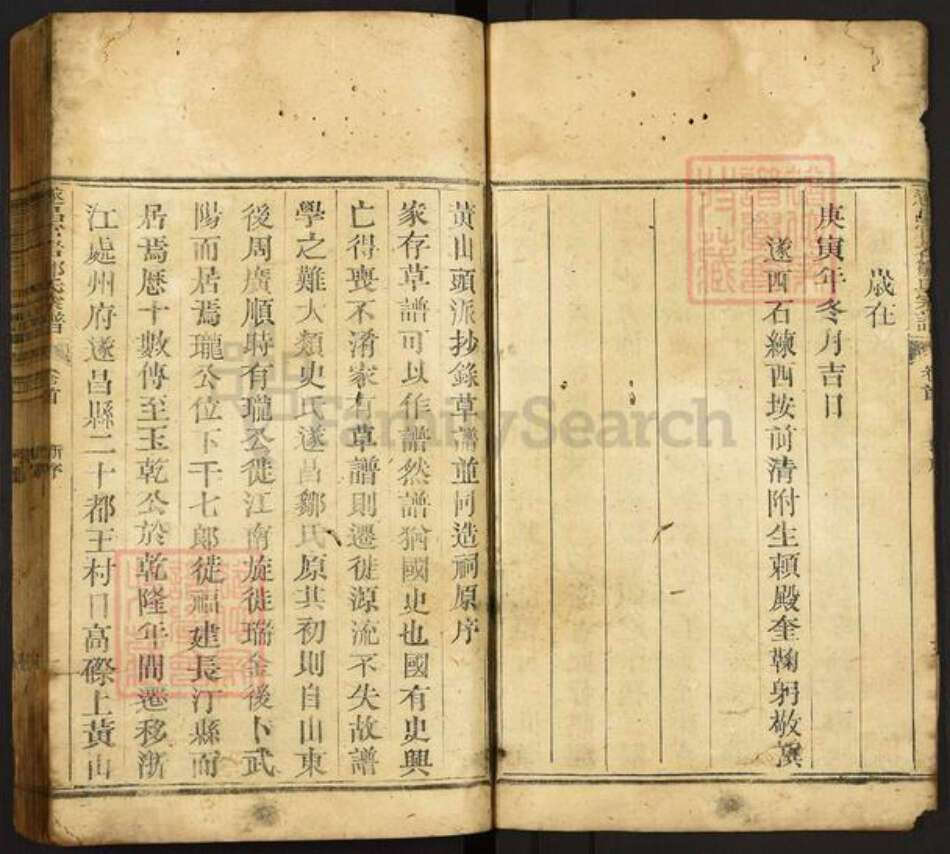 歲在
庚寅年冬月吉日
遂西石練西垵前清附生賴殿奎鞠躬敬譔
黃山頭派抄錄草譜並同造祠原序
家存草譜可以作譜然譜猶國史也國有史興
亡得喪不淆家有草譜則遷徙源流不失故譜
學之難大類史氏遂昌鄒氏原其初則自山東
後周廣順時有瓏公徙江南旋徙瑞金後卜武
陽而居焉瓏公位下千七郎徙福建長汀縣而
居焉歷十數傳至玉乾公於乾隆年間遷移浙
江處州府遂昌縣二十都王村口高磜上黃山
卷首
新序
FamilySearch